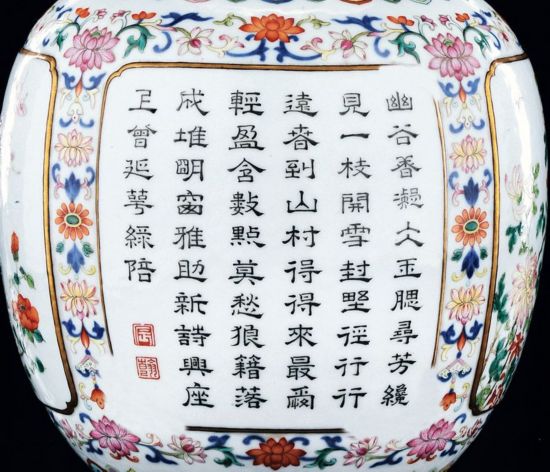 幽谷香凝仌玉腮尋芳纔
見一枝開雪封野徑行行
遠春到山村得得來最愛
輕盈含數點莫愁狼籍落
成堆明窗雅助新詩興座
上曾延萼綠陪
宸
翰